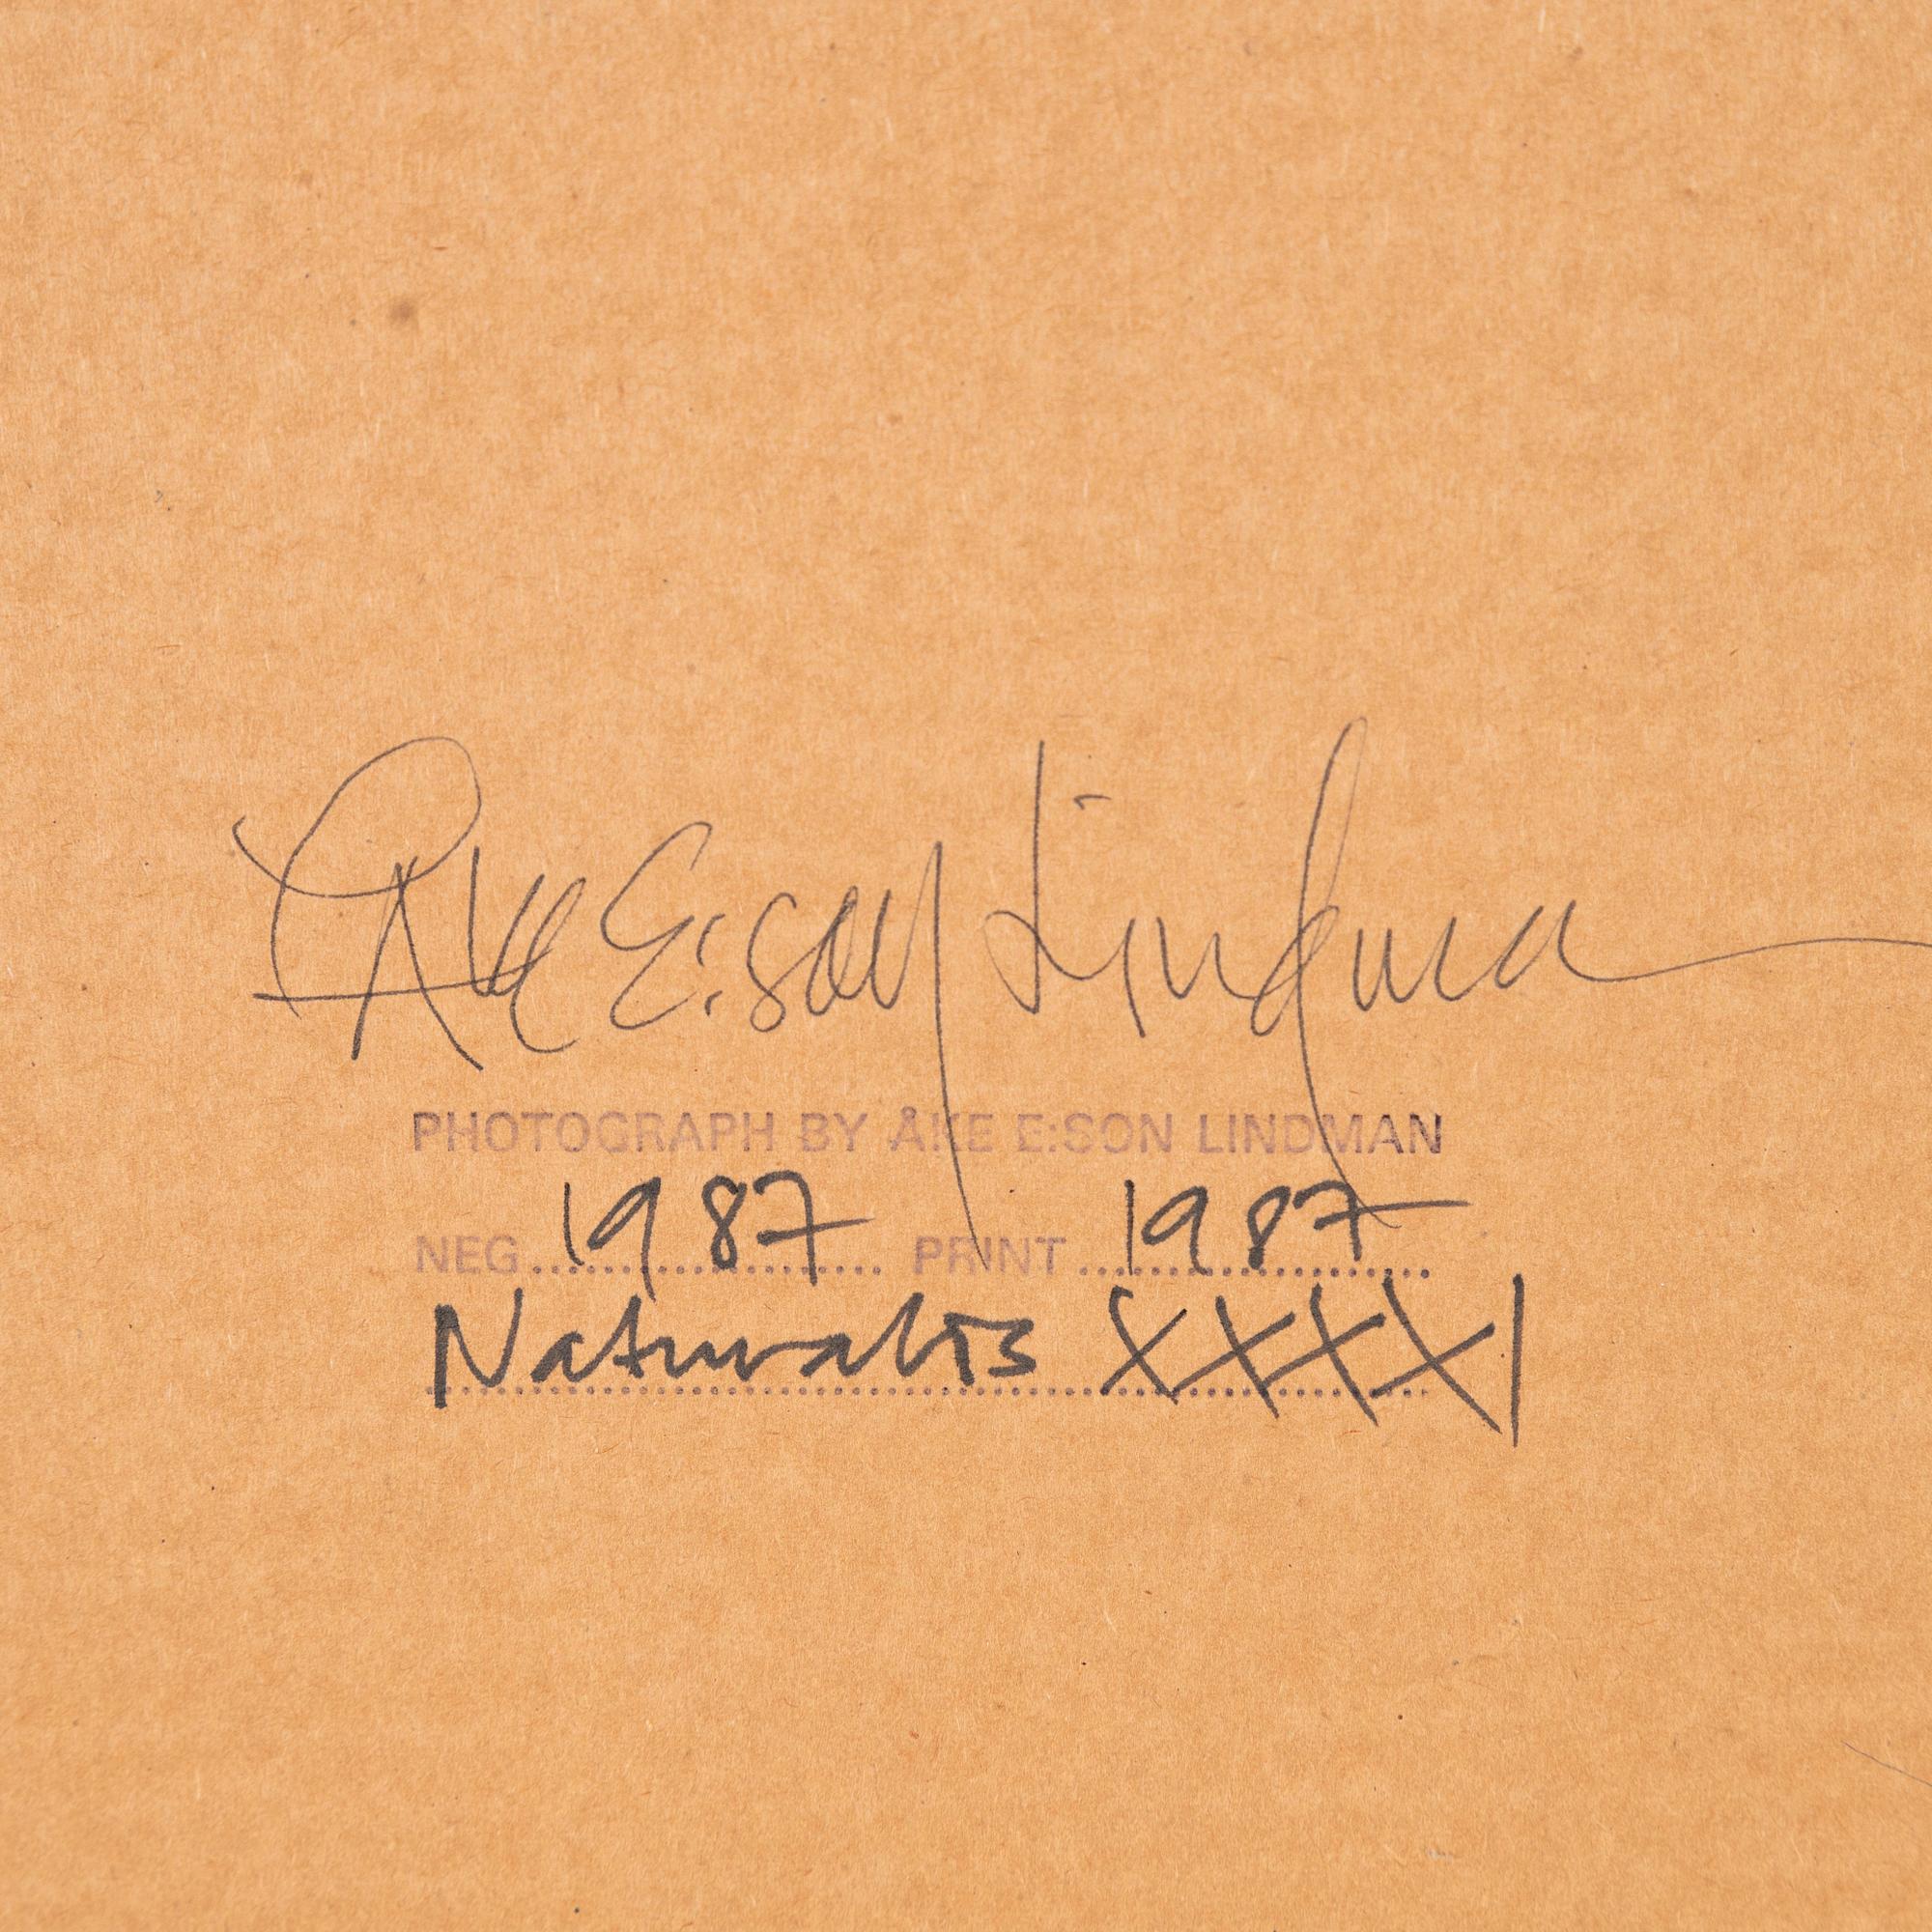 Åke E:son Lindman
PHOTOGRAPH BY ÅKE E:SON LINDMAN
NEG 1987 PRINT 1987
Naturalis XXXXI